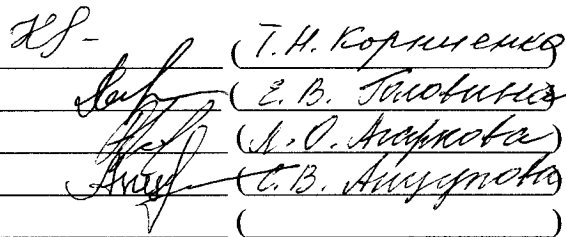 (Т.Н. Корниенко)
(Е.В. Головина)
(Л.О. Агаркова)
(С.В. Анцупова)
( )